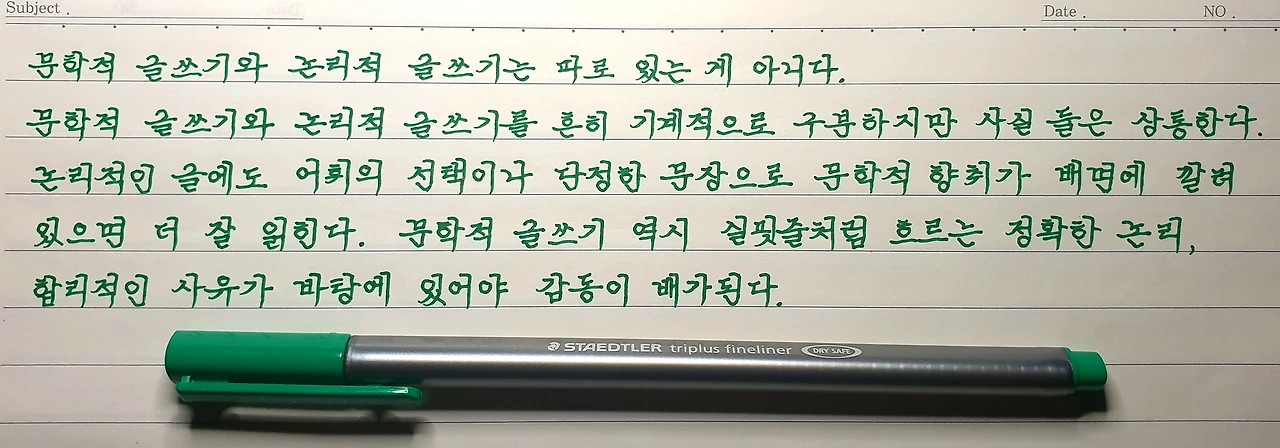 Subject . Date . NO .
문학적 글쓰기와 논리적 글쓰기는 따로 있는 게 아니다.
문학적 글쓰기와 논리적 글쓰기를 흔히 기계적으로 구분하지만 사실 둘은 상통한다.
논리적인 글에도 어휘의 선택이나 단정한 문장으로 문학적 향취가 배면에 깔려
있으면 더 잘 읽힌다. 문학적 글쓰기 역시 실핏줄처럼 흐르는 정확한 논리,
합리적인 사유가 바탕에 있어야 감동이 배가된다.
STAEDTLER triplus fineliner DRY SAFE